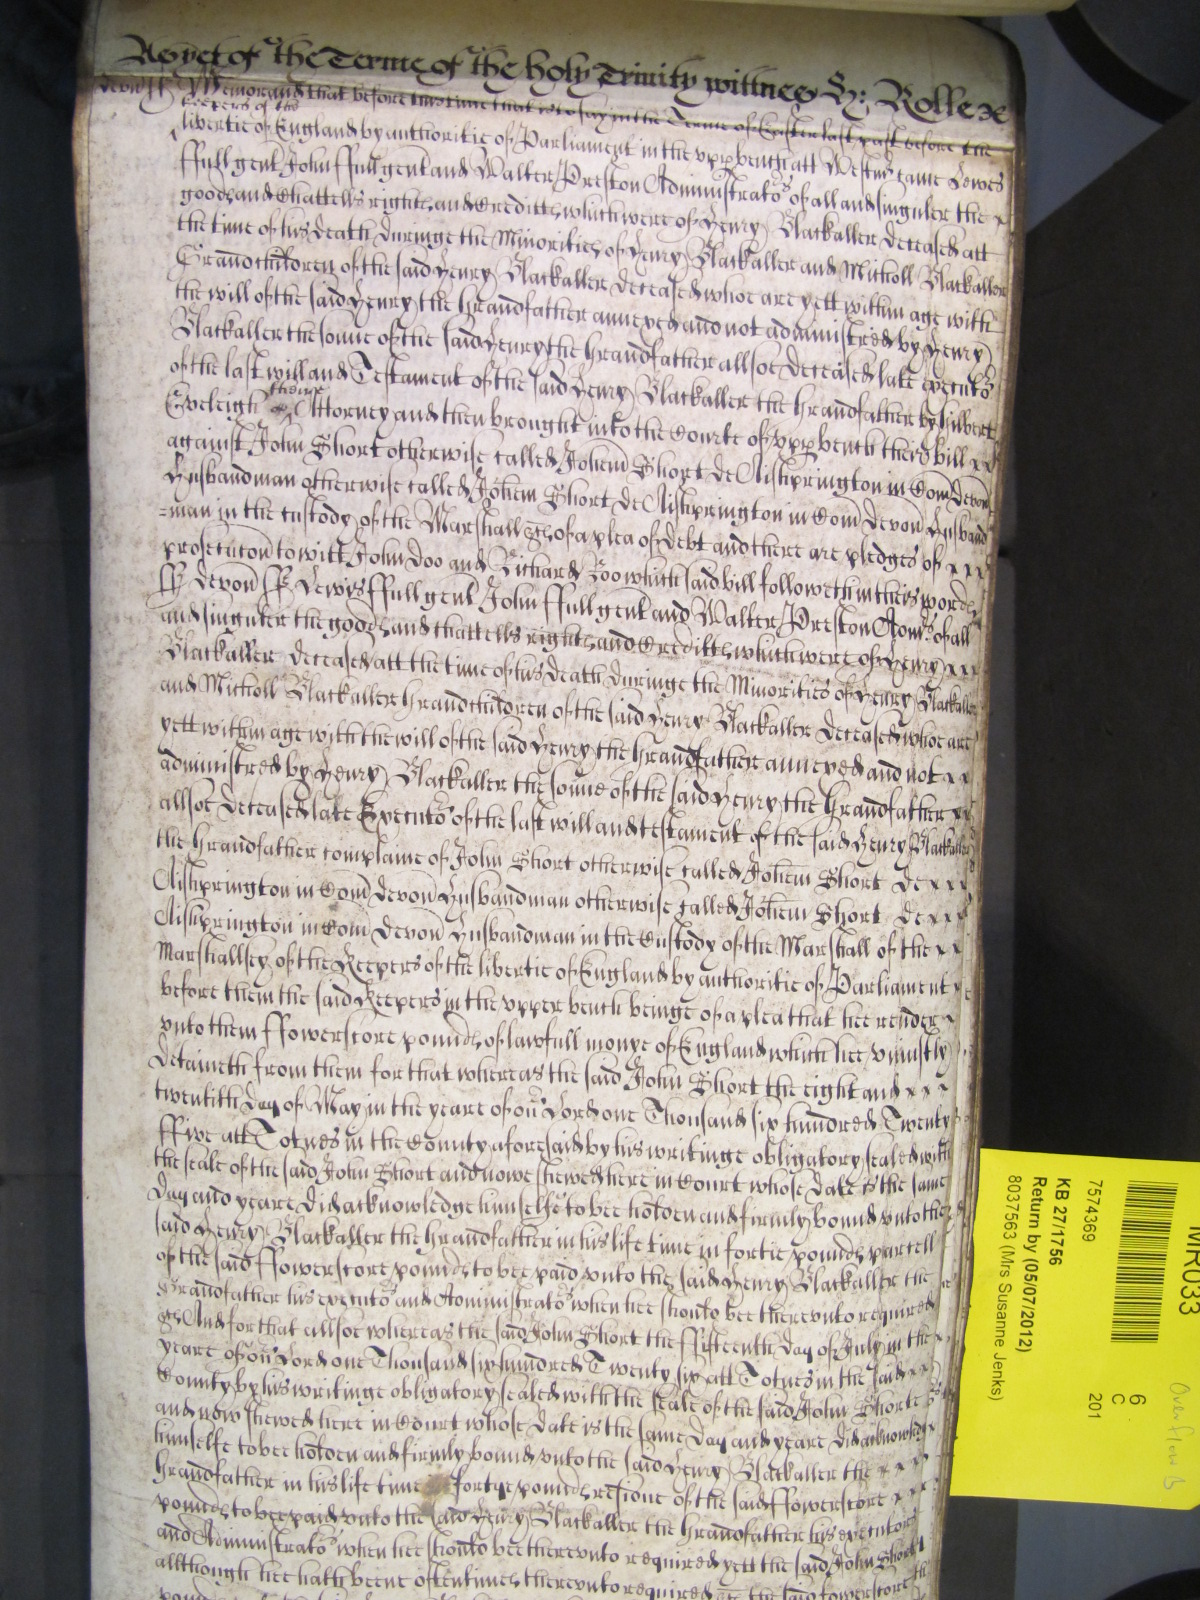 As yet of the Terme of the holy Trinity wittnes H: Rolle
Devon ss Memorand that before this time that is to say in the Terme of Easter last past before the
keepers of the
libertie of England by authoritie of Parliament in the upper bench att Westmr came Lewes
ffull gent John ffull gent and Walter Preston Administrators of all and singuler the
goods and Chattells rights and Creditts which were of Henry Blackaller deceased att
the time of his death duringe the Minorities of Henry Blackaller and Micholl Blackaller
Grandchildren of the said Henry Blackaller deceased whoe are yett within age with
the will of the said Henry the Grandfather annexed and not administred by Henry
Blackaller the sonne of the said Henry the Grandfather allsoe deceased late executor
of the last will and Testament of the said Henry Blackaller the Grandfather by Gilbert
Eveleigh theire Attorney and then brought into the Courte of upper bench there bill
against John Short otherwise called Johem Short de Aishprington in Com Devon
husbandman otherwise called Johem Short de Aishprington in Com Devon husband
=man in the custody of the Marshall &c of a plea of debt and there are pledges of
prosecucon to witt John Doo and Richard Roo which said bill followeth in theis words
ss Devon ss Lewis ffull gent John ffull gent and Walter Preston Admrs of all
and singuler the goods and chattells rights and Creditts which were of Henry
Blackaller deceased att the time of his death duringe the Minorities of Henry Blackaller
and Micholl Blackaller Grandchildren of the said Henry Blackaller deceased whoe are
yett within age with the will of the said Henry the Grandfather annexed and not
administred by Henry Blackaller the sonne of the said Henry the Grandfather
allsoe deceased late Executor of the last will and testament of the said Henry Blackaller
the Grandfather complaine of John Short otherwise called Johem Short de
Aishprington in Com Devon husbandman otherwise called Johem Short de
Aishprington in Com Devon husbandman in the Custody of the Marshall of the
Marshallsey of the Keepers of the libertie of England by authoritie of Parliament
before them the said Keepers in the upper bench beinge of a plea that hee render
unto them ffowerscore pounds of lawfull monye of England which hee uniustly
detaineth from them for that whereas the said John Short the eight and
twentith day of May in the yeare of our Lord one Thousand six hundred Twenty
ffive att Totnes in the County aforesaid by his writinge obligatory sealed with
the seale of the said John Short and nowe shewed here in Court whose date is the same
day and yeare did acknowledge himselfe to bee holden and firmly bound unto the
said Henry Blackaller the Grandfather in his life time in fortie pounds parcell
of the said ffowerscore pounds to bee paid unto the said Henry Blackaller the
Grandfather his executors and Administrators when hee should bee thereunto required
And for that allsoe whereas the said John Short the ffifteenth day of July in the
yeare of our Lord one Thousand six hundred Twenty six att Totnes in the said
County by his writinge obligatory sealed with the seale of the said John Shorte
and now shewed here in Court whose date is the same day and yeare did acknowledge
himselfe to bee holden and firmly bound unto the said Henry Blackaller the
Grandfather in his life time fortye pounds residue of the said ffowerscore
pounds to bee paid unto the said Henry Blackaller the Grandfather his executors
and Administrators when hee should bee thereunto required yett the said John Short
allthough hee hath beene oftentimes thereunto required &c the said fowerscore
MR033
7574369
KB 27/1756
Return by (05/07/2012)
8037563 (Mrs Susanne Jenks)
6
C
201
Overflow B